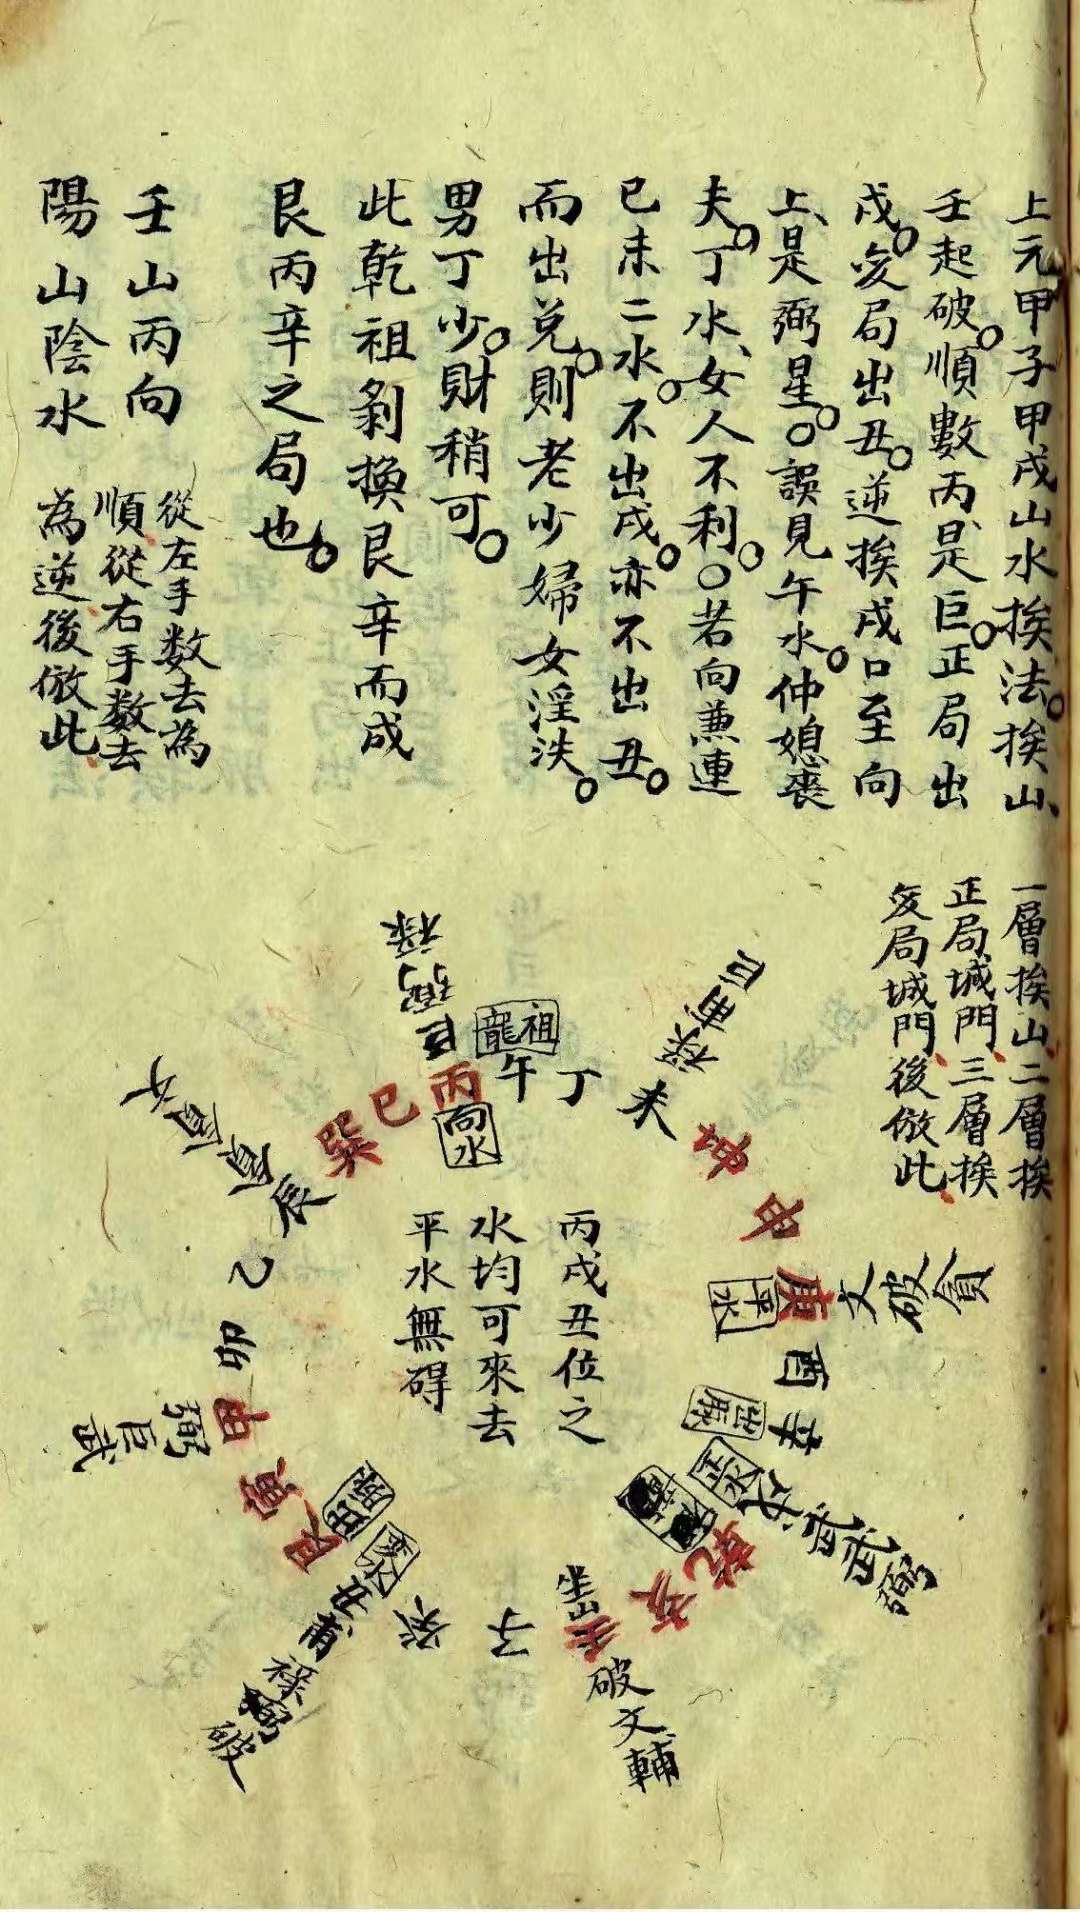 上元甲子甲戌山水挨法。挨山、
壬起破。順數丙、是巨。正局出
戌。变局出丑。逆挨戌口至向
上、是弼星。○誤見午水。仲媳喪
夫。丁水、女人不利。○若向兼連
巳未二水。不出戌。亦不出丑。
而出兌。則老少婦女淫泆。
男丁少。財稍可。
此乾祖剝換艮辛而成
艮丙辛之局也。
壬山丙向
陽山陰水
從左手数去為
順從右手数去
為逆後倣此
一層挨山二層挨
正局城門三層挨
变局城門後倣此
祖龍
午
丁
未
祿甫巨
坤
申
庚
平水
文破貪
酉
辛
出脈
戌
正水
武武弼
乾
亥
壬
坐山
破文輔
子
癸
丑
甫祿弼破
艮
寅
甲
弼巨武
卯
乙
辰
巽
巳
丙
向水
巨弼祿
丙戌丑位之
水均可來去
平水無碍